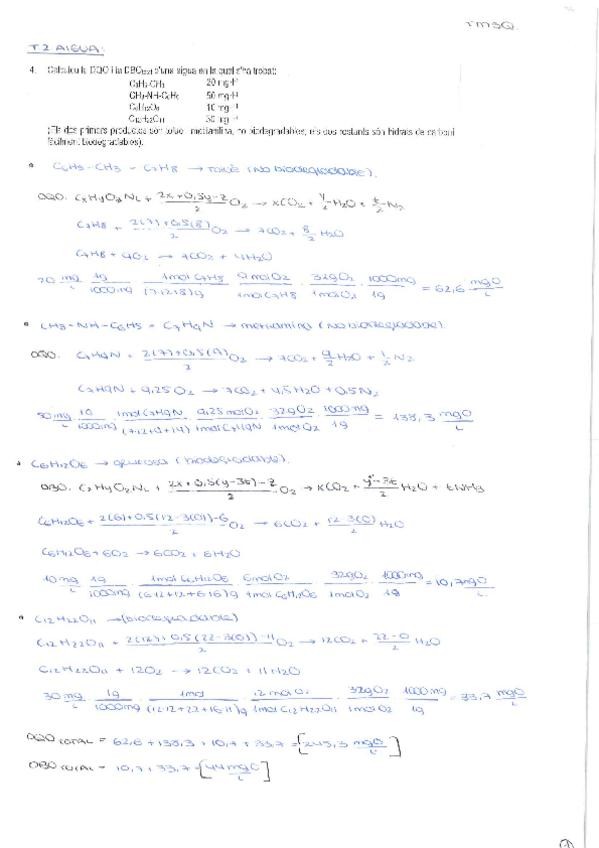 TMSQ.
T2 AIGUA:
4. Calculeu la DQO i la DBO d'una aigua en la qual s'ha trobat:
C6H5-CH3 20 mg·l-1
CH3-NH-C6H5 50 mg·l-1
C6H12O6 10 mg·l-1
C12H22O11 30 mg·l-1
(Els dos primers productes són toluè i metilanilina, no biodegradables, els dos restants són hidrats de carboni
fàcilment biodegradables).
C6H5-CH3 = C7H8 → toluè (No biodegradable).
DQO. CxHyOzNt + (2x+0,5y-z)/2 O2 → xCO2 + y/2 H2O + t/2 N2
C7H8 + (2(7)+0,5(8))/2 O2 → 7CO2 + 8/2 H2O
C7H8 + 9O2 → 7CO2 + 4H2O
20 mg/L · 1g/1000mg · 1mol C7H8/(7·12+8)g · 9mol O2/1mol C7H8 · 32gO2/1molO2 · 1000mg/1g = 62,6 mgO/L
CH3-NH-C6H5 = C7H9N → (No biodegradable).
DQO. C7H9N + (2(7)+0,5(9))/2 O2 → 7CO2 + 9/2 H2O + 1/2 N2
C7H9N + 9,25O2 → 7CO2 + 4,5H2O + 0,5N2
50 mg/L · 1g/1000mg · 1mol C7H9N/(7·12+9+14) · 9,25molO2/1molC7H9N · 32gO2/1molO2 · 1000mg/1g = 138,3 mgO/L
C6H12O6 → glucosa (biodegradable).
DBO. CxHyOzNt + (2x+0,5(y-3t)-z)/2 O2 → xCO2 + (y-3t)/2 H2O + tNH3
C6H12O6 + (2(6)+0,5(12-3(0))-6)/2 O2 → 6CO2 + (12-3(0))/2 H2O
C6H12O6 + 6O2 → 6CO2 + 6H2O
10 mg/L · 1g/1000mg · 1mol C6H12O6/(6·12+12+6·16)g · 6molO2/1molC6H12O6 · 32gO2/1molO2 · 1000mg/1g = 10,7 mgO/L
C12H22O11 → (biodegradable)
C12H22O11 + (2(12)+0,5(22-3(0))-11)/2 O2 → 12CO2 + (22-0)/2 H2O
C12H22O11 + 12O2 → 12CO2 + 11H2O
30 mg/L · 1g/1000mg · 1mol/(12·12+22+16·11)g · 12molO2/1molC12H22O11 · 32gO2/1molO2 · 1000mg/1g = 33,7 mgO/L
DQO TOTAL = 62,6 + 138,3 + 10,7 + 33,7 = [245,3 mgO/L]
DBO TOTAL = 10,7 + 33,7 = [44 mgO/L]